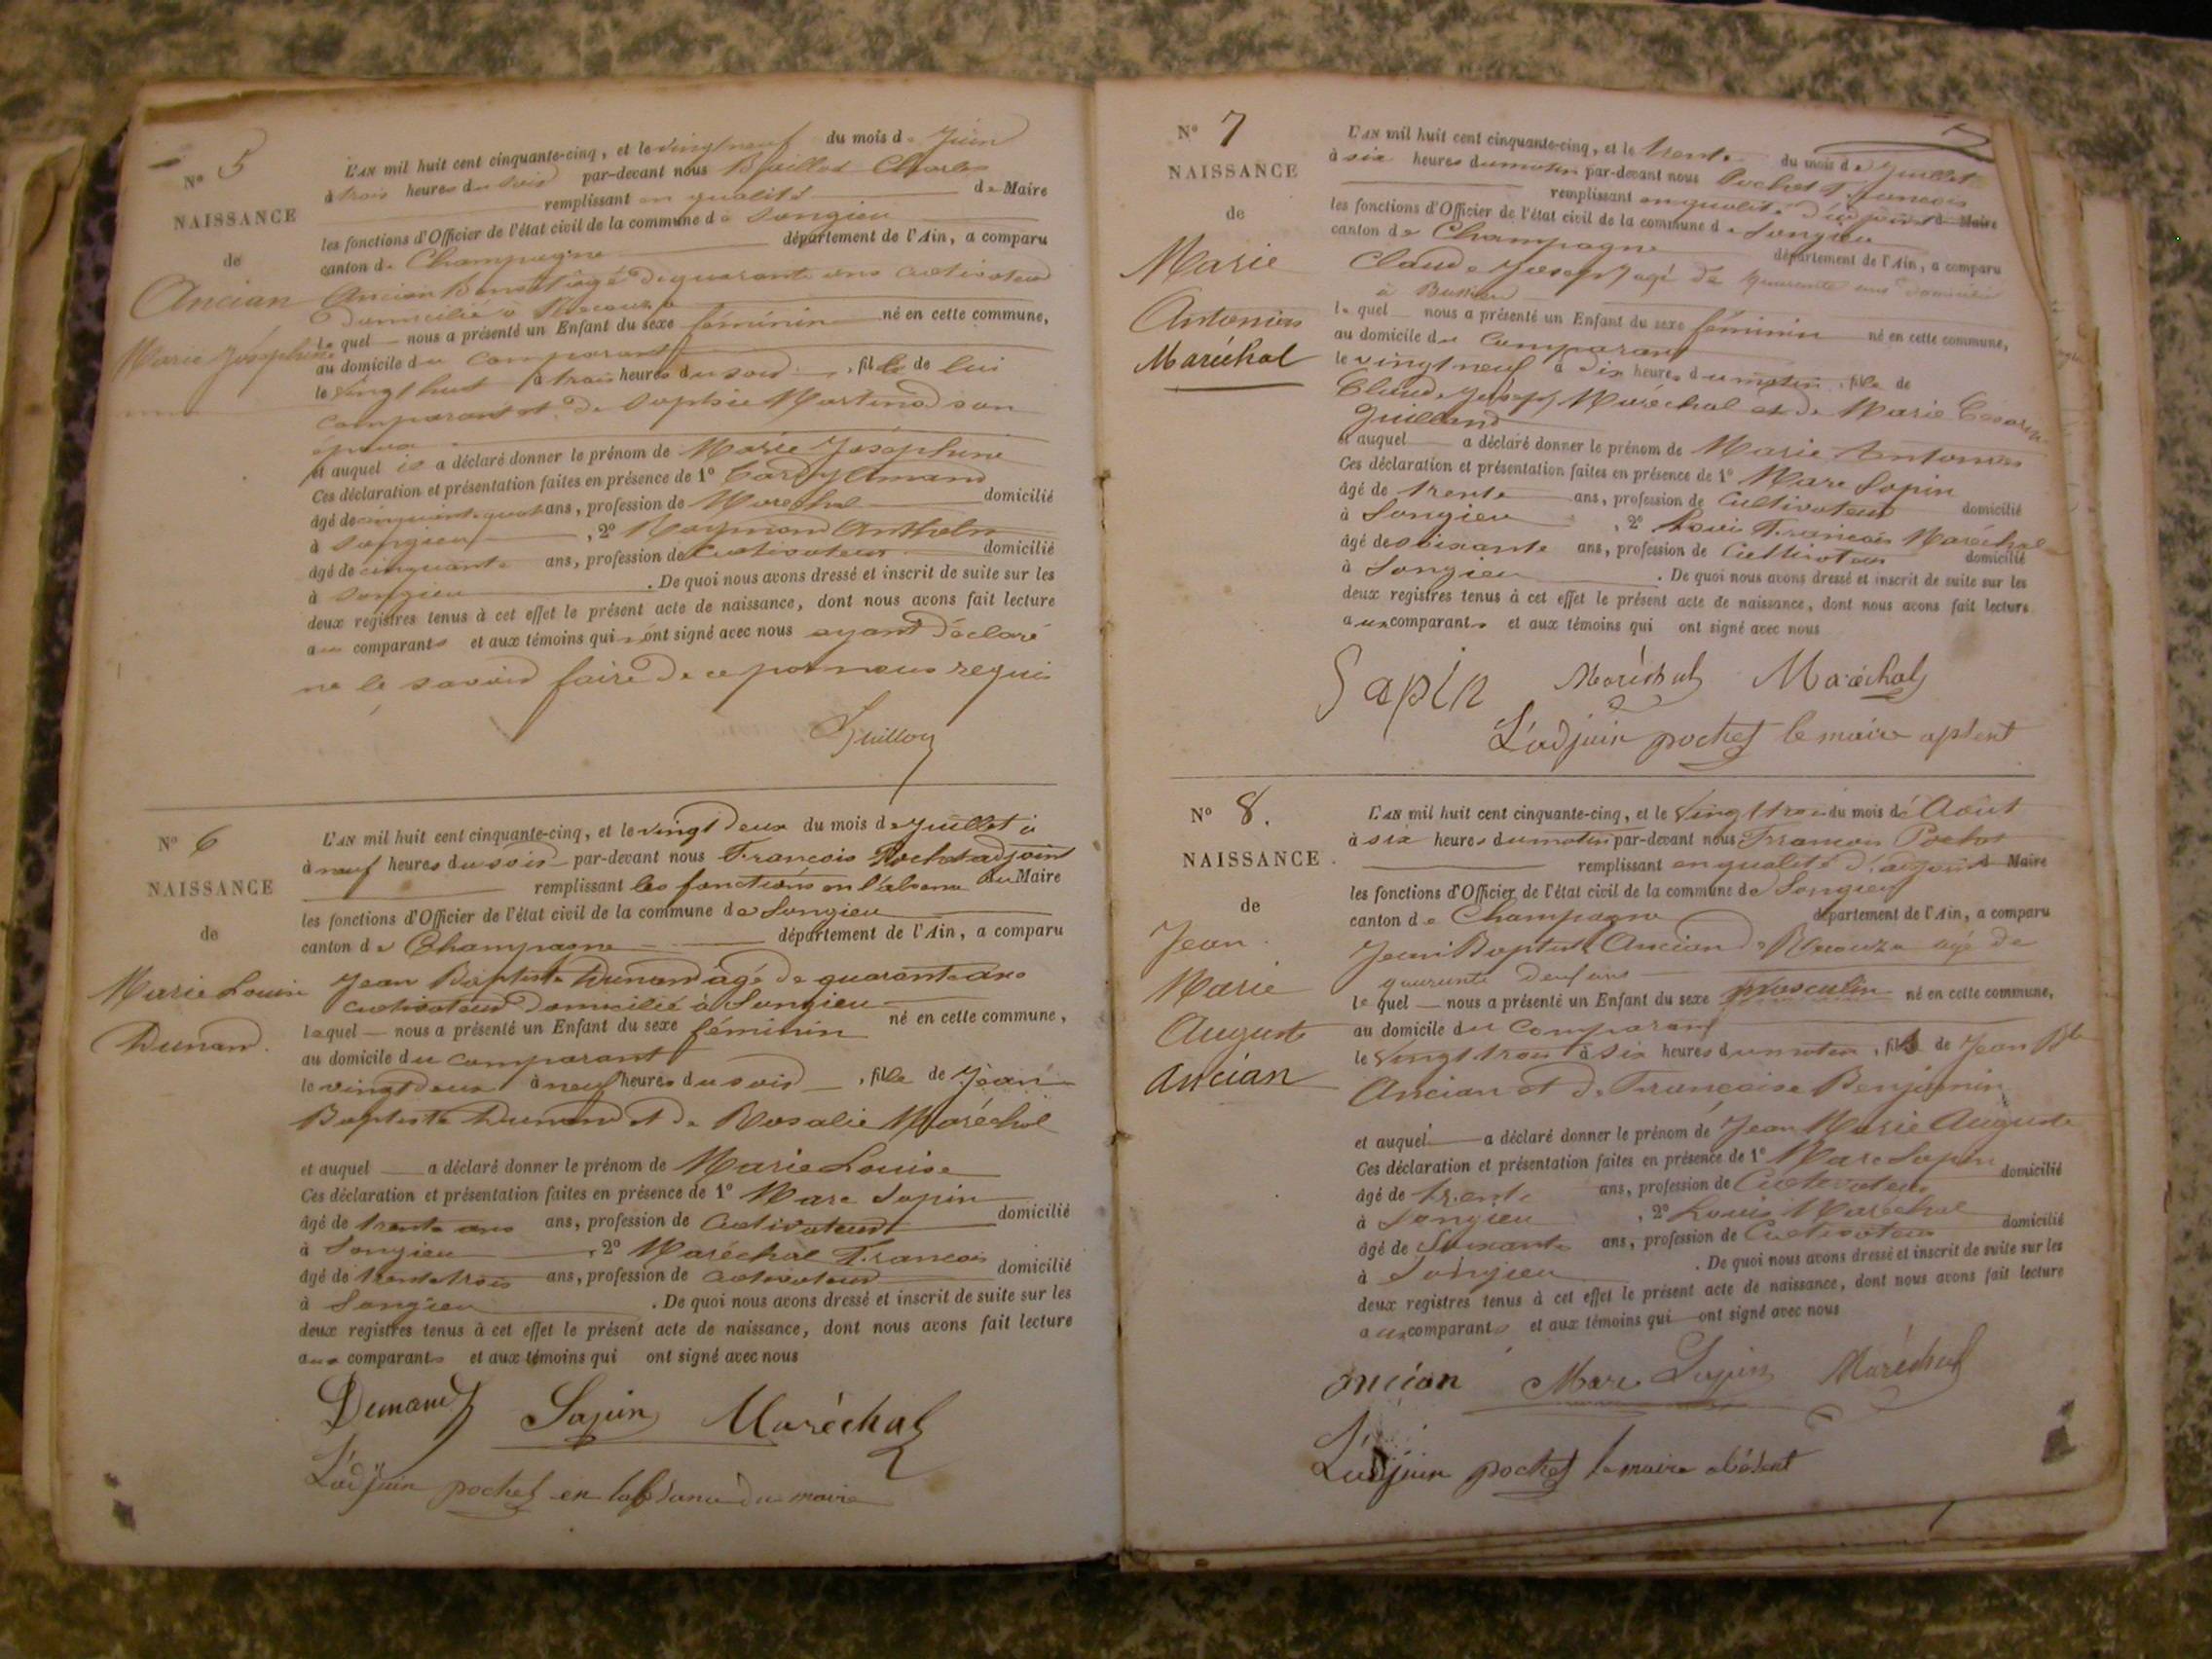 N° 5
NAISSANCE
de
Ancian
Marie Joséphine
L'AN mil huit cent cinquante-cinq, et le vingt neuf du mois de Juin
à trois heures du soir par-devant nous Charles
remplissant en qualité de Maire
les fonctions d'Officier de l'état civil de la commune de Songieu
canton de Champagne département de l'Ain, a comparu
Ancian Benoit âgé de quarante ans cultivateur
domicilié à
le quel nous a présenté un Enfant du sexe féminin né en cette commune,
au domicile du comparant
le vingt huit à trois heures du soir, fille de lui
comparant et de Sophie Martinod son
épouse
et auquel il a déclaré donner le prénom de Marie Joséphine
Ces déclaration et présentation faites en présence de 1° Amand
âgé de cinquante quatre ans, profession de Maréchal domicilié
à Songieu, 2° Raymond Anthelme
âgé de cinquante ans, profession de cultivateur domicilié
à Songieu. De quoi nous avons dressé et inscrit de suite sur les
deux registres tenus à cet effet le présent acte de naissance, dont nous avons fait lecture
aux comparants et aux témoins qui n'ont signé avec nous ayant déclaré
ne le savoir faire de ce par nous requis
N° 6
NAISSANCE
de
Marie Louise
Dunand.
L'AN mil huit cent cinquante-cinq, et le vingt deux du mois de Juillet à
à neuf heures du soir par-devant nous Francois Pochet adjoint
remplissant les fonctions en l'absence du Maire
les fonctions d'Officier de l'état civil de la commune de Songieu
canton de Champagne département de l'Ain, a comparu
Jean Baptiste Dunand âgé de quarante ans
cultivateur domicilié à Songieu
lequel nous a présenté un Enfant du sexe féminin né en cette commune,
au domicile du comparant
le vingt deux à neuf heures du soir, fille de Jean
Baptiste Dunand et de Rosalie Maréchal
et auquel a déclaré donner le prénom de Marie Louise
Ces déclaration et présentation faites en présence de 1° Marc Sapin
âgé de trente ans ans, profession de Cultivateur domicilié
à Songieu, 2° Maréchal Francois
âgé de trente trois ans, profession de cultivateur domicilié
à Songieu. De quoi nous avons dressé et inscrit de suite sur les
deux registres tenus à cet effet le présent acte de naissance, dont nous avons fait lecture
aux comparants et aux témoins qui ont signé avec nous
Dunand Sapin Maréchal
L'adjoin pochet en labsance du maire
N° 7
NAISSANCE
de
Marie
Antonine
Maréchal
L'AN mil huit cent cinquante-cinq, et le trente du mois de Juillet
à six heures du matin par-devant nous Pochet Francois
remplissant en qualité d'adjoint de Maire
les fonctions d'Officier de l'état civil de la commune de Songieu
canton de Champagne département de l'Ain, a comparu
Claude Joseph agé de quarante ans domicilié
à
le quel nous a présenté un Enfant du sexe féminin né en cette commune,
au domicile du Comparant
le vingt neuf à dix heures du matin, fille de
Claude Joseph Maréchal et de Marie
et auquel a déclaré donner le prénom de Marie Antonine
Ces déclaration et présentation faites en présence de 1° Marc Sapin
âgé de trente ans, profession de Cultivateur domicilié
à Songieu, 2° Louis Francois Maréchal
âgé de soixante ans, profession de Cultivateur domicilié
à Songieu. De quoi nous avons dressé et inscrit de suite sur les
deux registres tenus à cet effet le présent acte de naissance, dont nous avons fait lecture
aux comparants et aux témoins qui ont signé avec nous
Sapin Maréchal Maréchal
L'adjoin pochet le maire absent
N° 8.
NAISSANCE
de
Jean
Marie
Auguste
Ancian
L'AN mil huit cent cinquante-cinq, et le vingt trois du mois de Août
à six heures du matin par-devant nous Francois Pochet
remplissant en qualité d'adjoint Maire
les fonctions d'Officier de l'état civil de la commune de Songieu
canton de Champagne département de l'Ain, a comparu
Jean Baptiste Ancian agé de
quarante ans
le quel nous a présenté un Enfant du sexe masculin né en cette commune,
au domicile du Comparant
le vingt trois à six heures du matin, fils de Jean Bte
Ancian et de Francoise Benjamin
et auquel a déclaré donner le prénom de Jean Marie Auguste
Ces déclaration et présentation faites en présence de 1° Marc Sapin
âgé de trente ans, profession de Cultivateur domicilié
à Songieu, 2° Louis Maréchal
âgé de Soixante ans, profession de Cultivateur domicilié
à Songieu. De quoi nous avons dressé et inscrit de suite sur les
deux registres tenus à cet effet le présent acte de naissance, dont nous avons fait lecture
aux comparants et aux témoins qui ont signé avec nous
ancian Marc Sapin Maréchal
L'adjoin pochet le maire absent